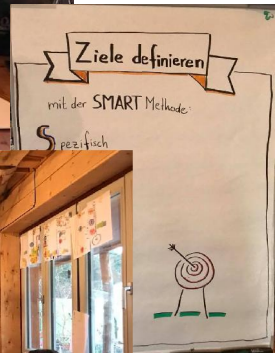 Ziele definieren
mit der SMART Methode:
Spezifisch